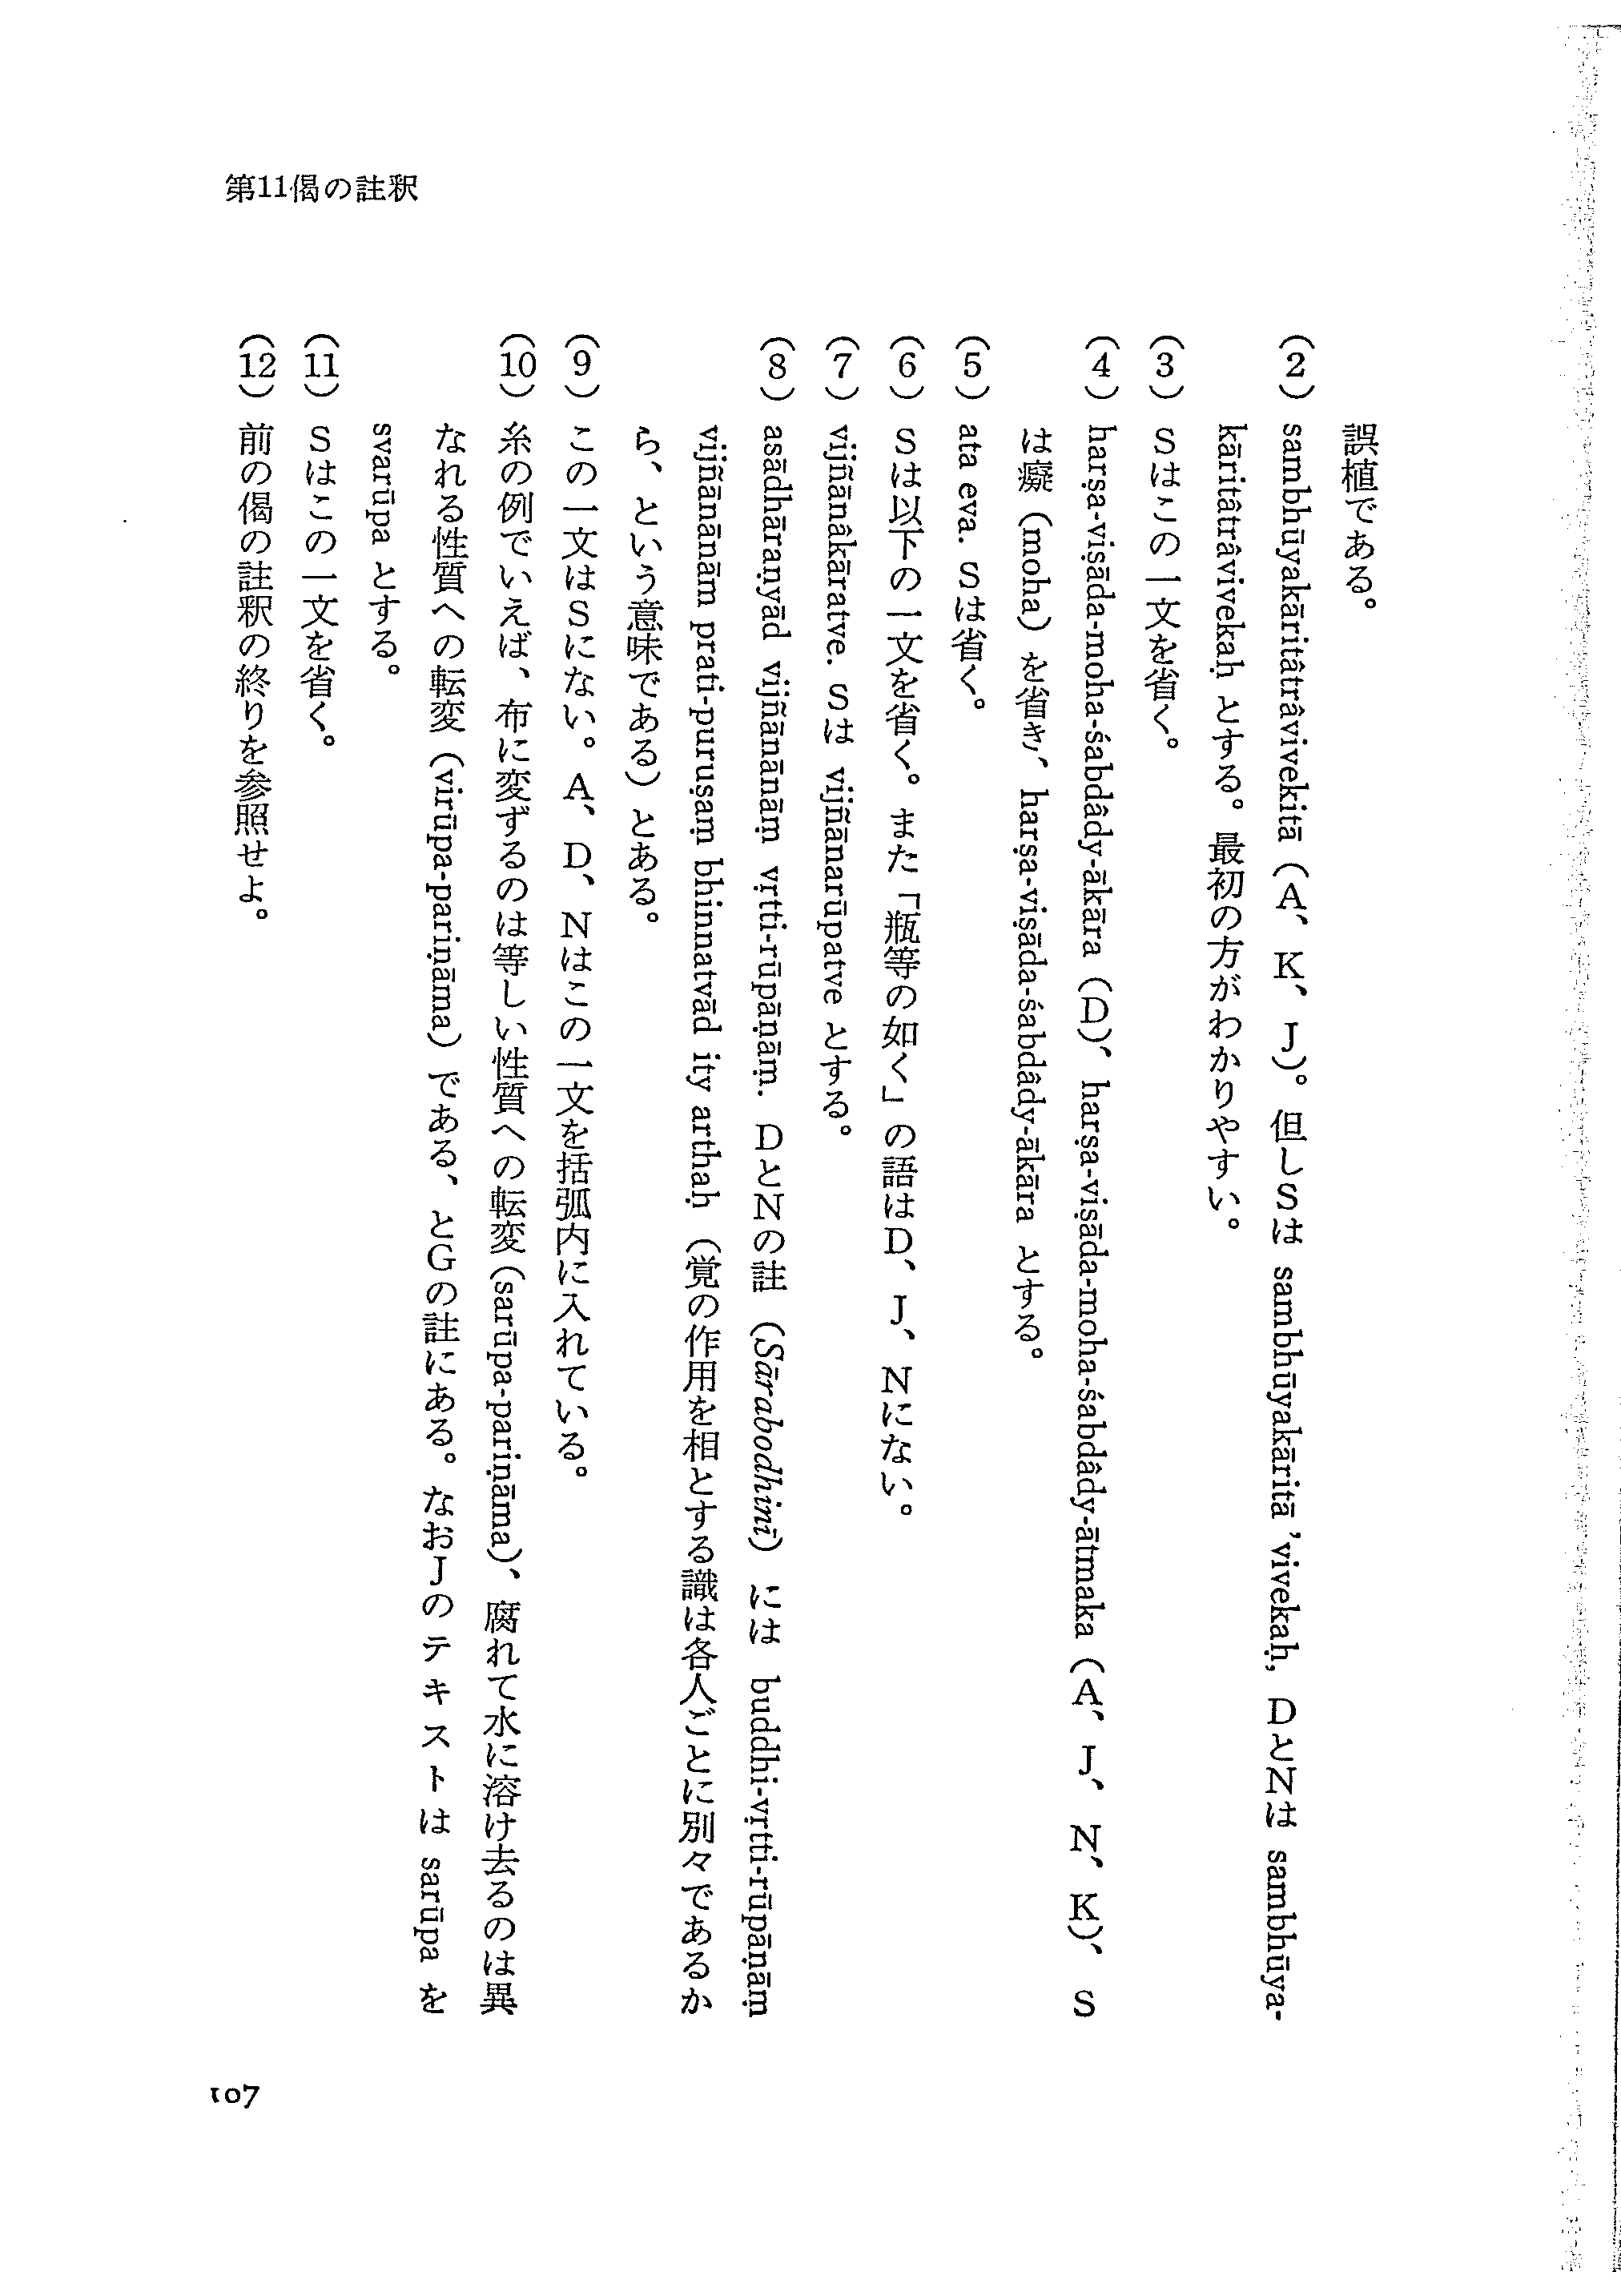 第11偈の註釈
誤植である。
(2) sambhūyakāritâtrâvivekitā（A、K、J）。但しSは sambhūyakāritā 'vivekaḥ, DとNは sambhūya-
kāritâtrâvivekaḥ とする。最初の方がわかりやすい。
(3) Sはこの一文を省く。
(4) harṣa-viṣāda-moha-śabdâdy-ākāra（D）、harṣa-viṣāda-moha-śabdâdy-ātmaka（A、J、N、K）、S
は癡（moha）を省き、harṣa-viṣāda-śabdâdy-ākāra とする。
(5) ata eva. Sは省く。
(6) Sは以下の一文を省く。また「瓶等の如く」の語はD、J、Nにない。
(7) vijñānâkāratve. Sは vijñānarūpatve とする。
(8) asādhāraṇyād vijñānānāṃ vṛtti-rūpāṇāṃ. DとNの註（Sārabodhinī）には buddhi-vṛtti-rūpāṇāṃ
vijñānānāṃ prati-puruṣaṃ bhinnatvād ity arthaḥ（覚の作用を相とする識は各人ごとに別々であるか
ら、という意味である）とある。
(9) この一文はSにない。A、D、Nはこの一文を括弧内に入れている。
(10) 糸の例でいえば、布に変ずるのは等しい性質への転変（sarūpa-pariṇāma）、腐れて水に溶け去るのは異
なれる性質への転変（virūpa-pariṇāma）である、とGの註にある。なおJのテキストは sarūpa を
svarūpa とする。
(11) Sはこの一文を省く。
(12) 前の偈の註釈の終りを参照せよ。
107